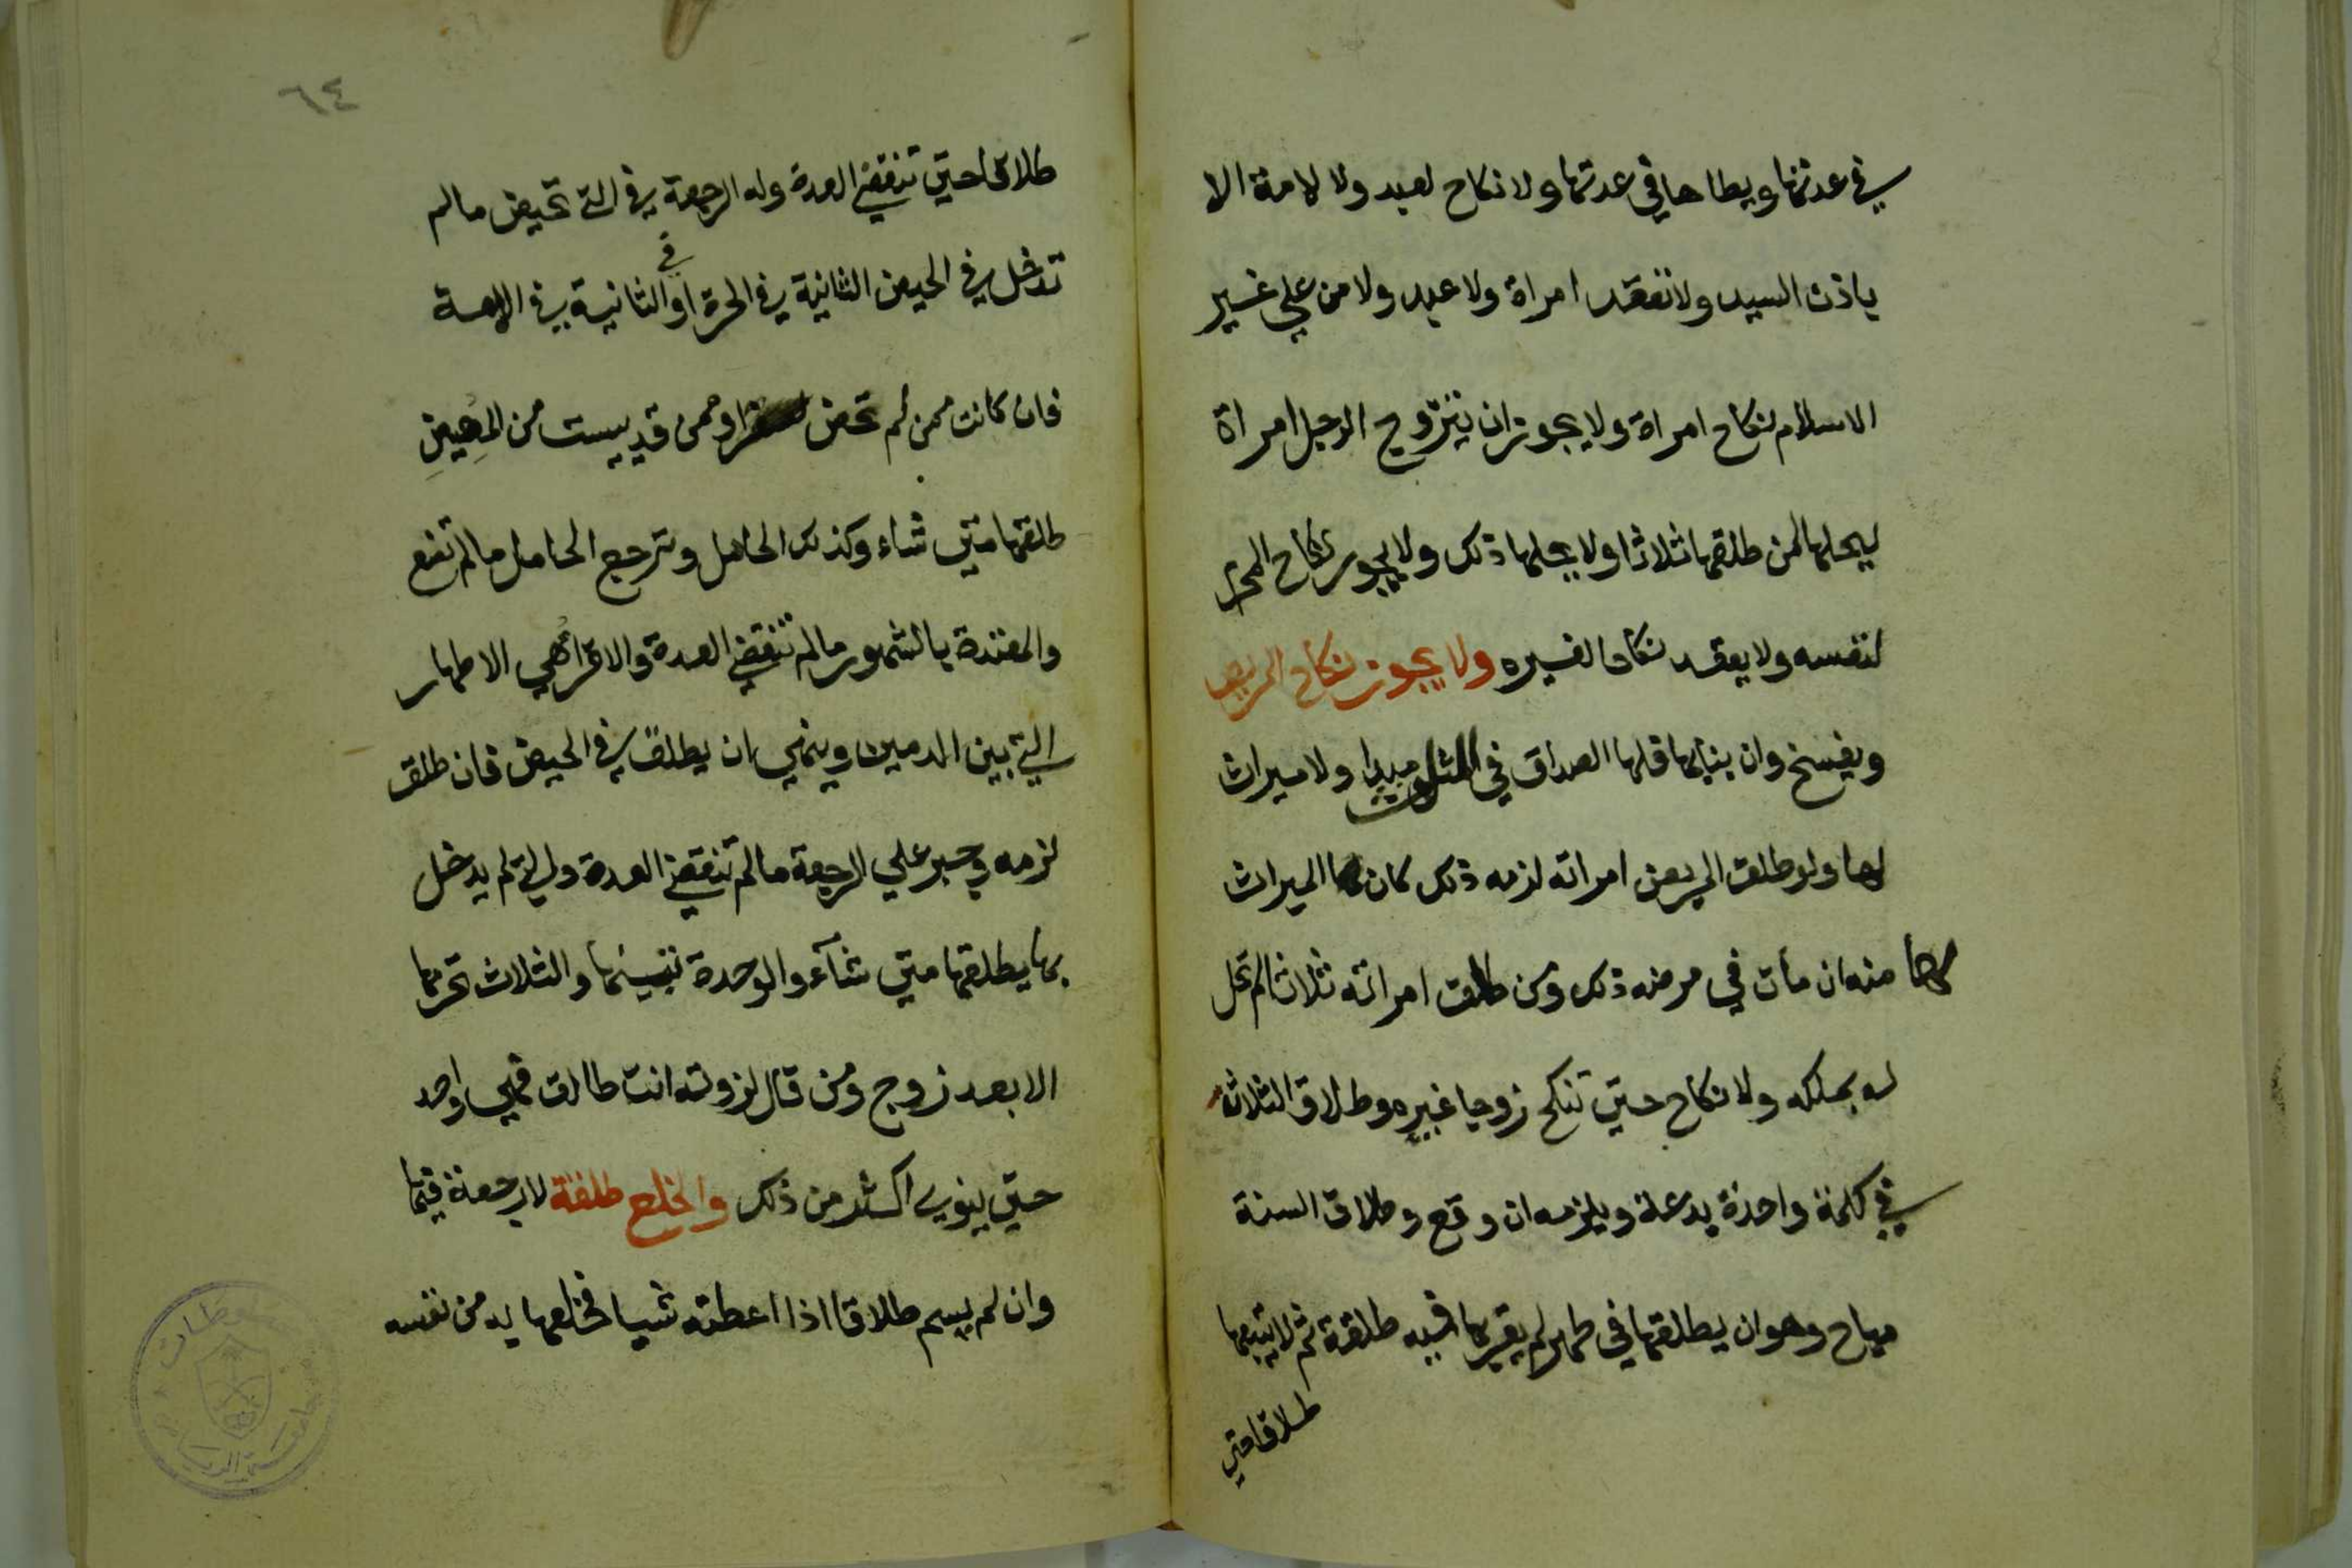 في عدتها ويطاها في عدتها ولا نكاح لعبد ولا لامة الا
باذن السيد ولا تعقد امراة ولا عبد ولا من علي غير
الاسلام نكاح امراة ولا يجوز ان يتزوج الرجل امراة
ليحلها لمن طلقها ثلاثا ولا يحلها ذلك ولا يجوز نكاح المحرم
لنفسه ولا يعقد نكاحا لغيره ولا يجوز نكاح المريض
ويفسخ وان بنا بها فلها الصداق في الثلث مبدا ولا ميراث
لها ولو طلق المريض امراته لزمه ذلك كان لها الميراث
لها منه ان مات في مرضه ذلك ومن طلق امراته ثلاثا لم تحل
له بملكه ولا نكاح حتي تنكح زوجا غيره وطلاق الثلاثة
في كلمة واحدة بدعة ويلزمه ان وقع وطلاق السنة
مباح وهو ان يطلقها في طهر لم يقربها فيه طلقة ثم لا يتبعها
طلاقا حتي
٦٤
طلاقا حتي تنقضي العدة وله الرجعة في التي تحيض مالم
تدخل في الحيض الثانية في الحرة او في الثانية في الامة
فان كانت ممن لم تحض او ممن قد ييست من المحيض
طلقها متي شاء وكذلك الحامل وترجع الحامل مالم تضع
والمعتدة بالشهور مالم تنقضي العدة والاقراء هي الاطهار
التي بين الدمين وينهي ان يطلق في الحيض فان طلق
لزمه وجبر علي الرجعة مالم تنقضي العدة والتي لم يدخل
بها يطلقها متي شآء والوحدة تبينها والثلاث تحرمها
الا بعد زوج ومن قال لزوجته انت طالق فهي واحد
حتي ينوي اكثر من ذلك والخلع طلقة لا رجعة فيها
وان لم يسم طلاقا اذا اعطته شيا فخلعها به من نفسه